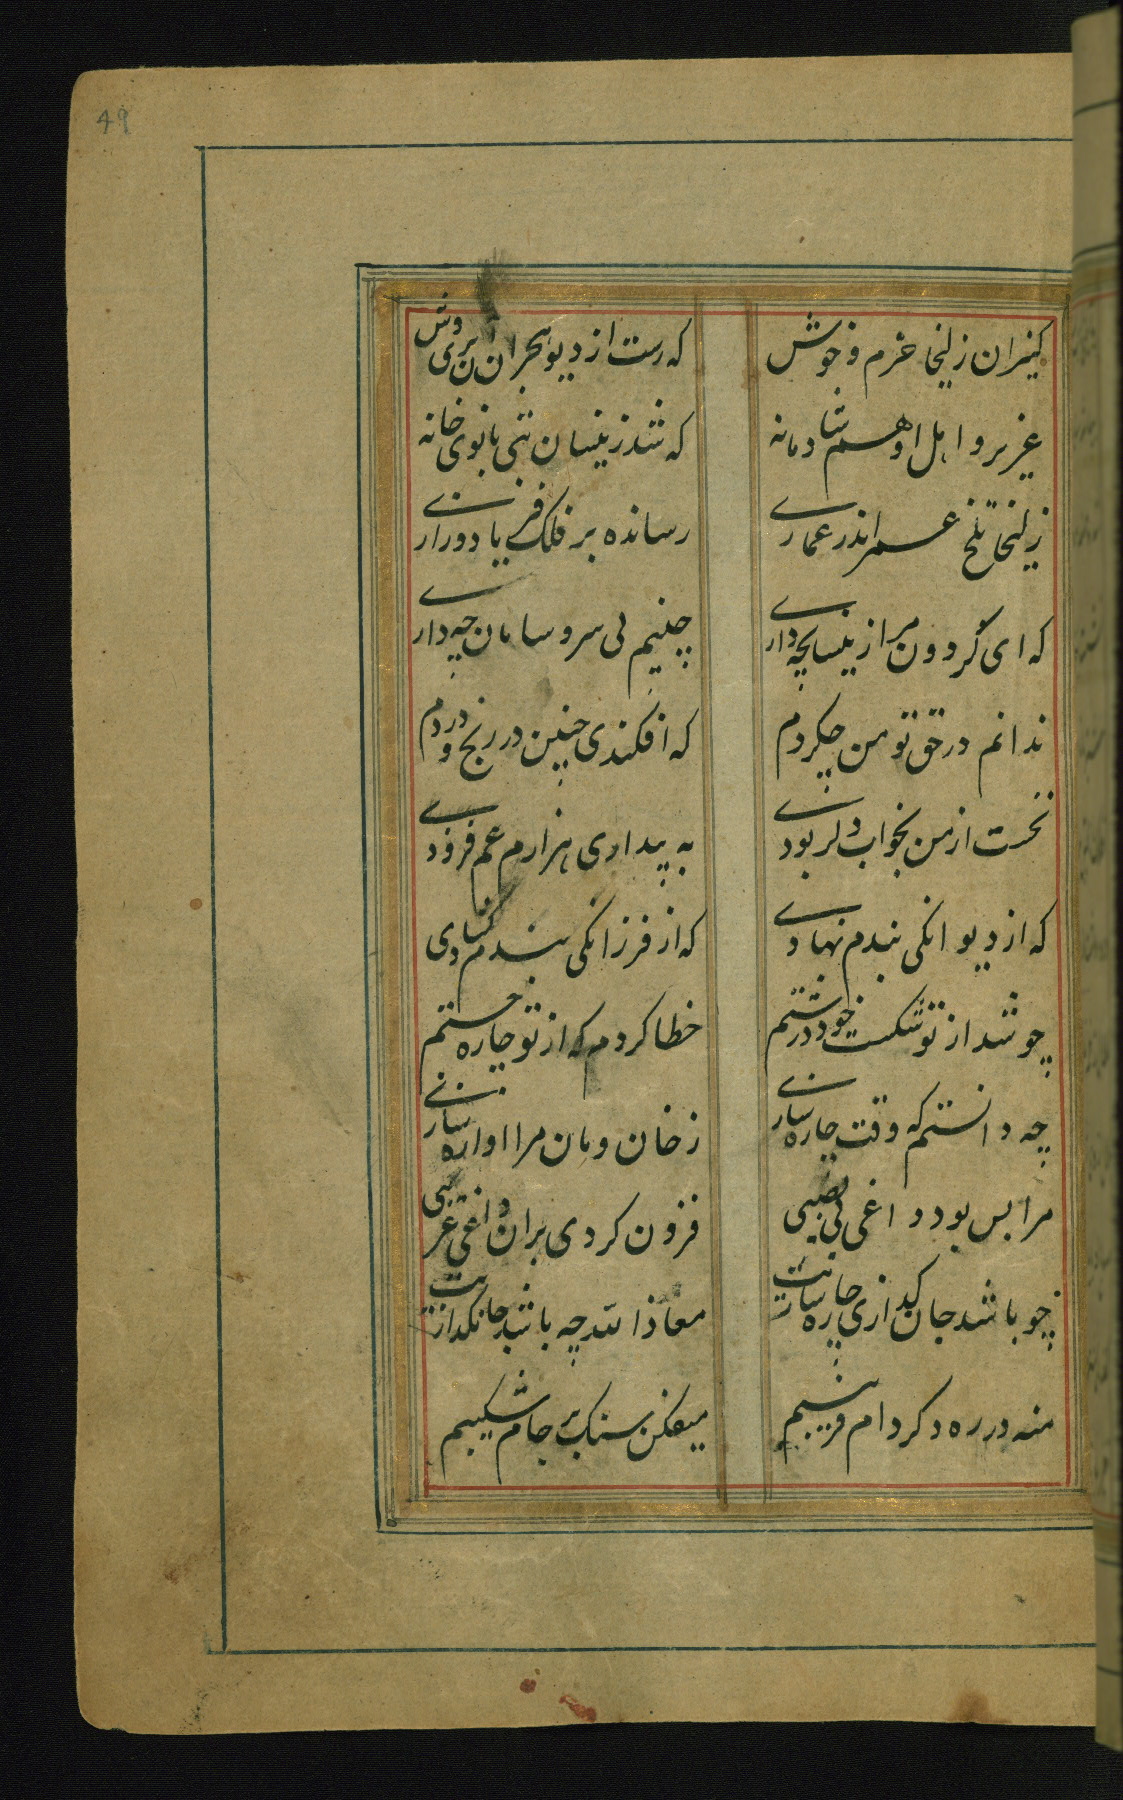 49
کنیزان زلیخا خرم و خوش که رست از دیو هجران آن پری وش
عزیز و اهل او هم شادمانه که شد زینسان بتی بانوی خانه
زلیخا تلخ عمر اندر عماری رسانده بر فلک فریاد و زاری
که ای گردون مرا زینسان چه داری چنیم بی سر و سامان چه داری
ندانم در حق تو من چکردم که افکندی چنین در رنج و دردم
نخست از من بخواب دل ربودی به بیداری هزارم غم فزودی
که از دیوانگی بندم نهادی که از فرزانگی بندم گشادی
چو شد از تو شکست خود درستم خطا کردم که از تو چاره جستم
چه دانستم که وقت چاره سازی ز خان و مان مرا اواره سازی
مرا بس بود داغی بی نصیبی فزون کردی بران داغی غریبی
چو باشد جان گدازی چاره سازت معاذ الله چه باشد جانگدازت
منه در ره دگر دام فریبم میفکن سنگ بر جام شکیبم